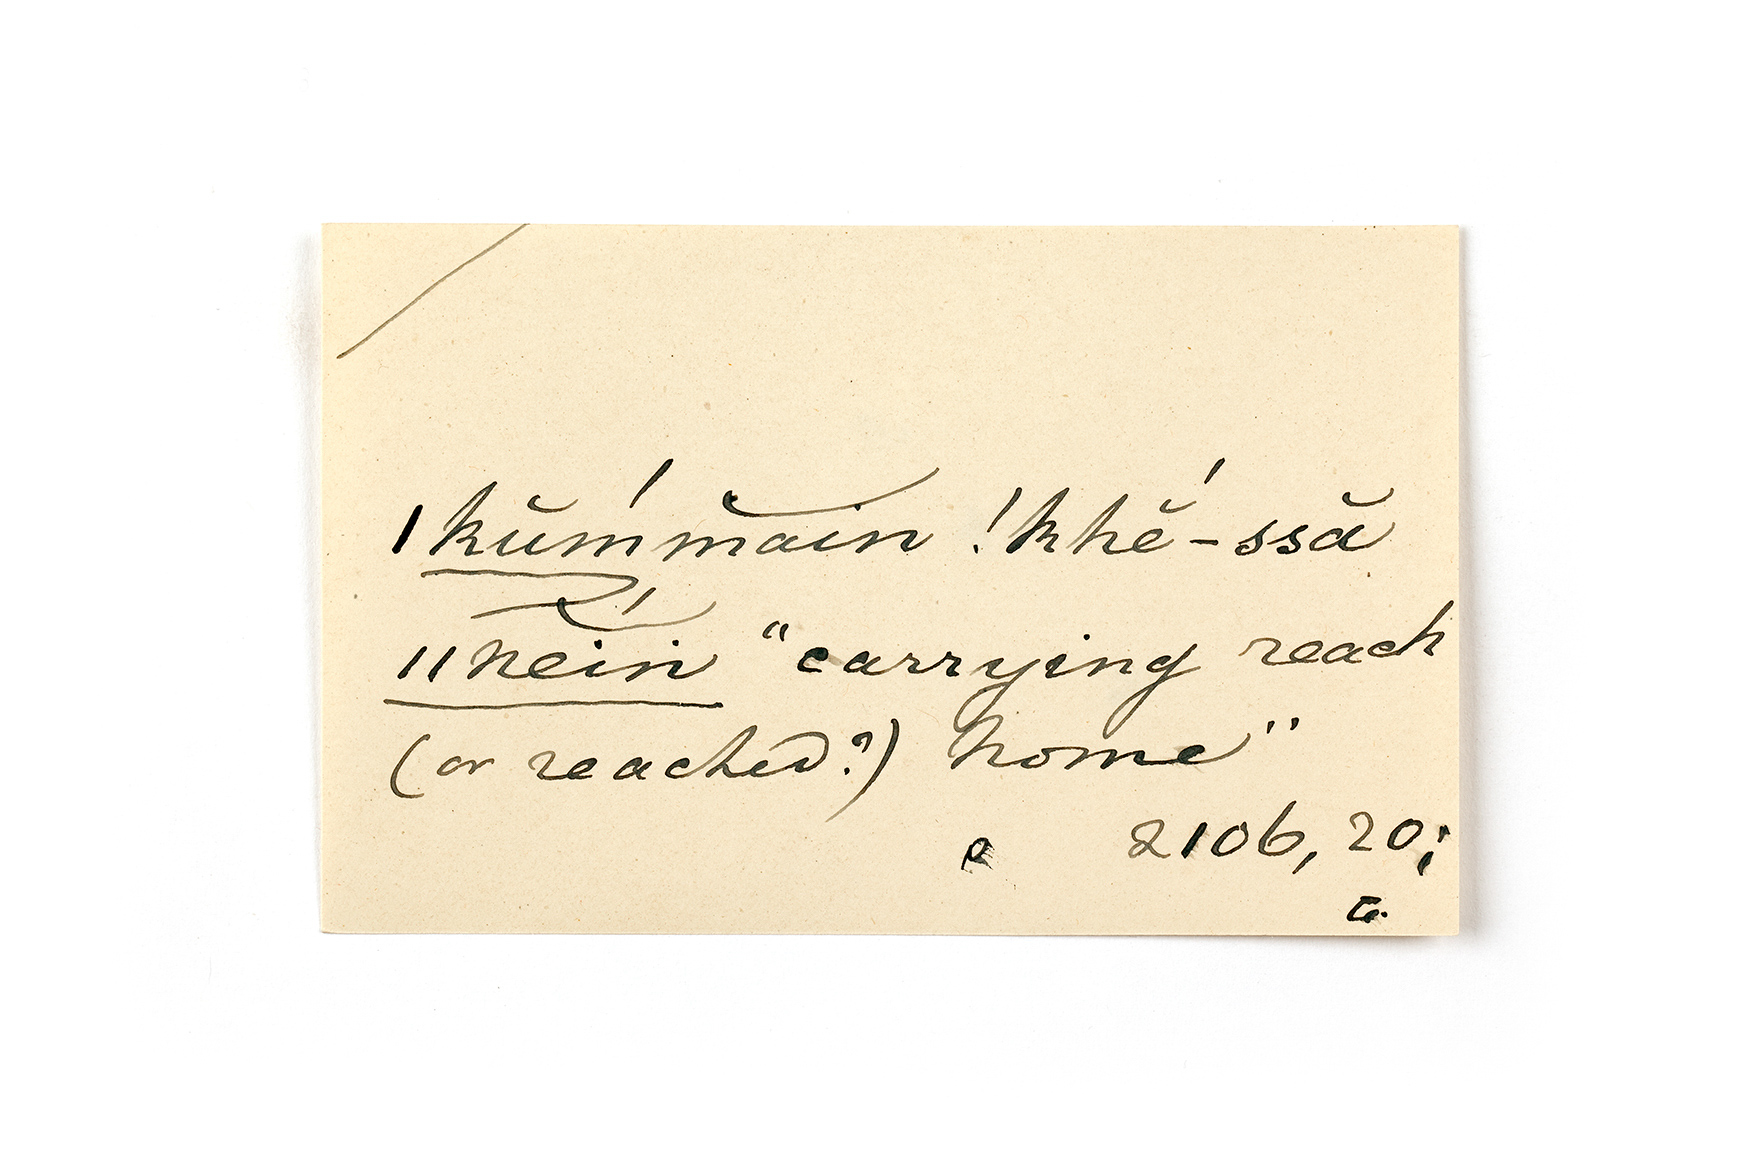 |kŭḿmain !khĕ́-ssă
||neiń "carrying reach
(or reached?) home"
2106, 20;
G.